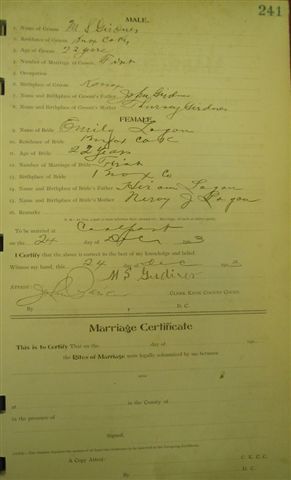 241
MALE.
1. Name of Groom M S Girdner
2. Residence of Groom Knox Co Ky
3. Age of Groom 22 years
4. Number of Marriage of Groom First
5. Occupation
6. Birthplace of Groom Knox
7. Name and Birthplace of Groom's Father John Girdner
8. Name and Birthplace of Groom's Mother Girdner
FEMALE.
9. Name of Bride Emily Logan
10. Residence of Bride Knox Co
11. Age of Bride 22 years
12. Number of Marriage of Bride First
13. Birthplace of Bride Knox Co
14. Name and Birthplace of Bride's Father Hiram Logan
15. Name and Birthplace of Bride's Mother Nervy J Logan
16. Remarks
To be married at Coalport
on the 24 day of Dec 3
I Certify that the above is correct to the best of my knowledge and belief.
Witness my hand, this 24 day of Dec 3
M S Girdner
Attest:
CLERK KNOX COUNTY COURT.
By D. C.
Marriage Certificate
This is to Certify That on the day of
the Rites of Marriage were legally solemnized by me between
and
at in the County of
in the presence of
Signed,
A Copy Attest: C. K. C. C.
By D. C.